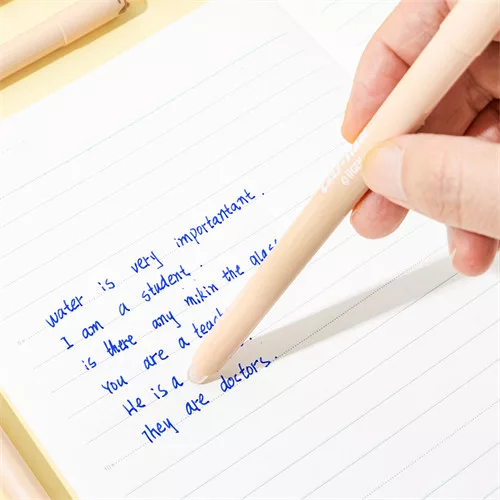 water is very importantant.
I am a student.
is there any mikin the glas
You are a teac
He is a
They are doctors.